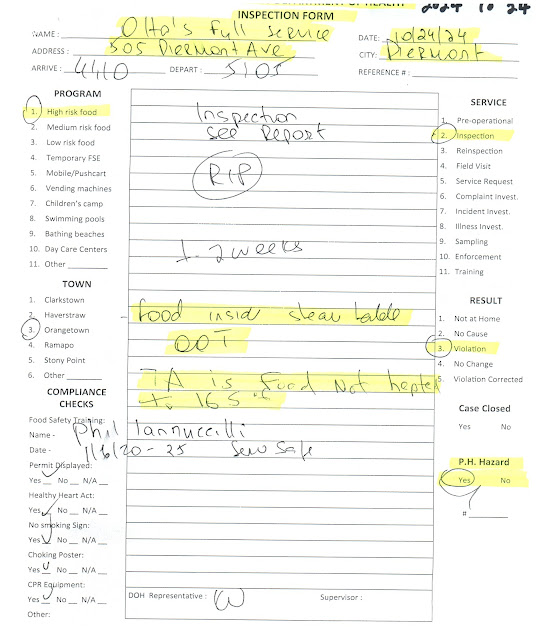 DEPARTMENT OF HEALTH
2024 10 24
INSPECTION FORM
NAME: Olta's Full Service
ADDRESS: 505 Piermont Ave
DATE: 10/24/24
CITY: Piermont
ARRIVE: 4410 DEPART: 5105
REFERENCE #:
PROGRAM
1. High risk food
2. Medium risk food
3. Low risk food
4. Temporary FSE
5. Mobile/Pushcart
6. Vending machines
7. Children's camp
8. Swimming pools
9. Bathing beaches
10. Day Care Centers
11. Other
TOWN
1. Clarkstown
2. Haverstraw
3. Orangetown
4. Ramapo
5. Stony Point
6. Other
COMPLIANCE
CHECKS
Food Safety Training:
Name - Phil Iannuccilli
Date - 1/6/20-25 Serv Safe
Permit Displayed:
Yes No N/A
Healthy Heart Act:
Yes No N/A
No smoking Sign:
Yes No N/A
Choking Poster:
Yes No N/A
CPR Equipment:
Yes No N/A
Other:
Inspection
See Report
RIP
+ 2 weeks
- Food inside steam table
OOT
IA is Food Not
to 165°
DOH Representative:
Supervisor:
SERVICE
1. Pre-operational
2. Inspection
3. Reinspection
4. Field Visit
5. Service Request
6. Complaint Invest.
7. Incident Invest.
8. Illness Invest.
9. Sampling
10. Enforcement
11. Training
RESULT
1. Not at Home
2. No Cause
3. Violation
4. No Change
5. Violation Corrected
Case Closed
Yes No
P.H. Hazard
Yes No
#